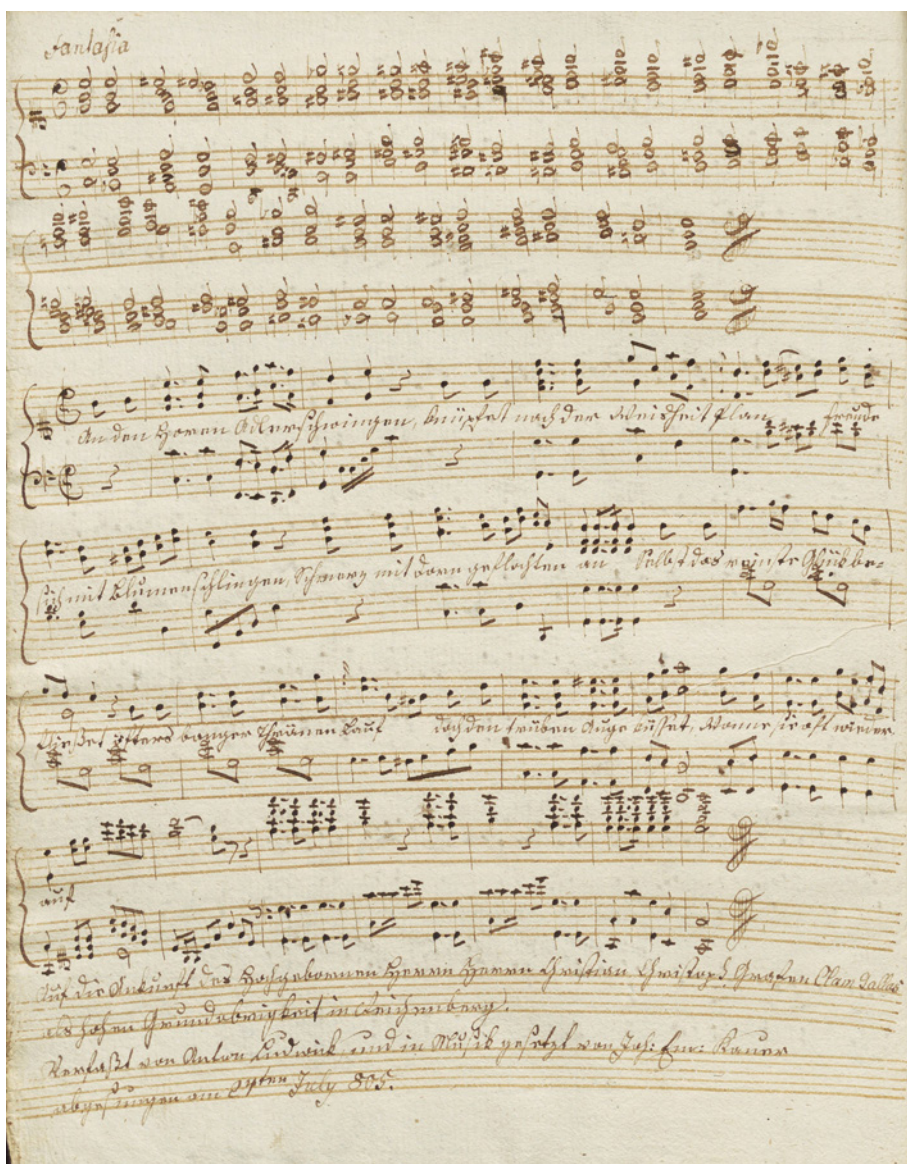 Fantasia
An den Horen Adlerschwingen, knüpfet nach der Weisheit Plan, Freude
sich mit Blumenschlingen, Schmerz mit Dorn geflochten an Selbst das reinste Glük be-
schließet öfters banger Thränen Lauf doch den trüben Auge küsset, Wonne, sie oft wieder
auf
Auf die Ankunft des Hochgebornen Herrn Herrn Christian Christoph Grafen Clam Gallas
als hohen Grundobrigkeit in Reichenberg.
Verfaßt von Anton und in Musik gesetzt von Joh: Em: Kauer
abgesungen am July 805.